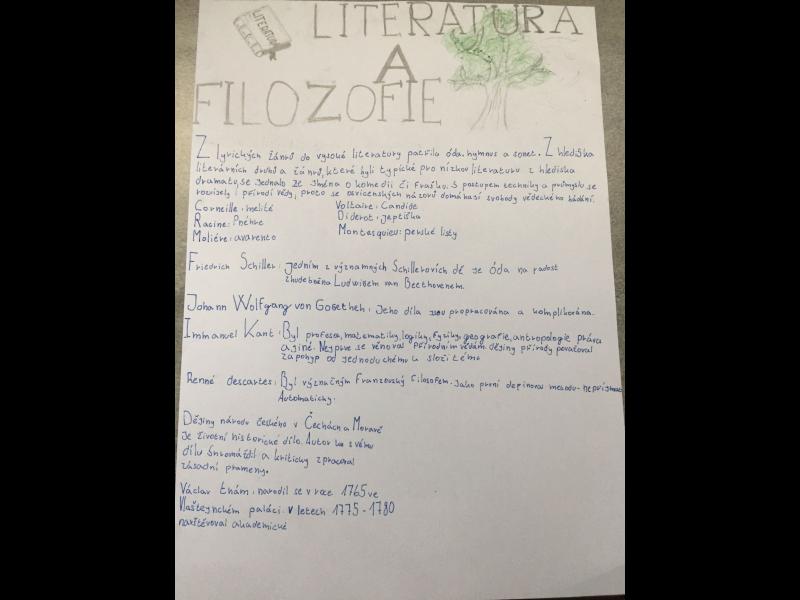 LITERATURA
LITERATURA
A
FILOZOFIE
Z lyrických žánrů do vysoké literatury patřila óda, hymnus a sonet. Z hlediska
literárních druhů a žánrů, které byli typické pro nízkou literaturu z hlediska
dramatu, se jednalo ze jména o komedii či frašku. S postupem techniky a průmyslu se
rozvíjely i přírodí vědy, proto se osvícenských názorů domáhasí svobody vědeckého bádání.
Corneille: melité
Voltaire: Candide
Racine:
Diderot: jeptiška
Moliére: avarento
Montesquieu: perské listy
Friedrich Schiller: jedním z významných Schillerovích dě je óda na radost
zhudebněna Ludwigem van Beethovenem.
Johann Wolfgang von Goeetheh: Jeho díla jsou propracována a komplikována.
Immanuel Kant: Byl profesor, matematiky, logiky, fyziky, geografie, antropologie práva
a jiné. Nejprve se věnoval přírodním vědám. dějiny přírody považoval
za pohyp od jednoduchému k složitému
Renné descartes: Byl význačným Franzouský filosofem. Jako první depinoval metodu -
Automaticky.
Dějiny národu českého v Čechách a Moravě
je životní historické dílo. Autor ke svému
dílu shromáždil a kriticky zpracoval
zásadní prameny.
Václav thám: narodil se v roce 1765 ve
Valšteynckém paláci. V letech 1775 - 1780
navštěvoval akademické